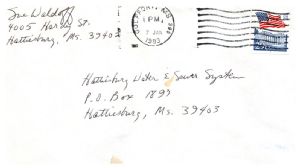 Sue Waldoff
4005 Hardy St.
Hattiesburg, Ms. 39402
GULFPORT, MS
PM
JAN
1983
Hattiesburg Water & Sewer System
P.O. Box 1897
Hattiesburg, Ms. 39403